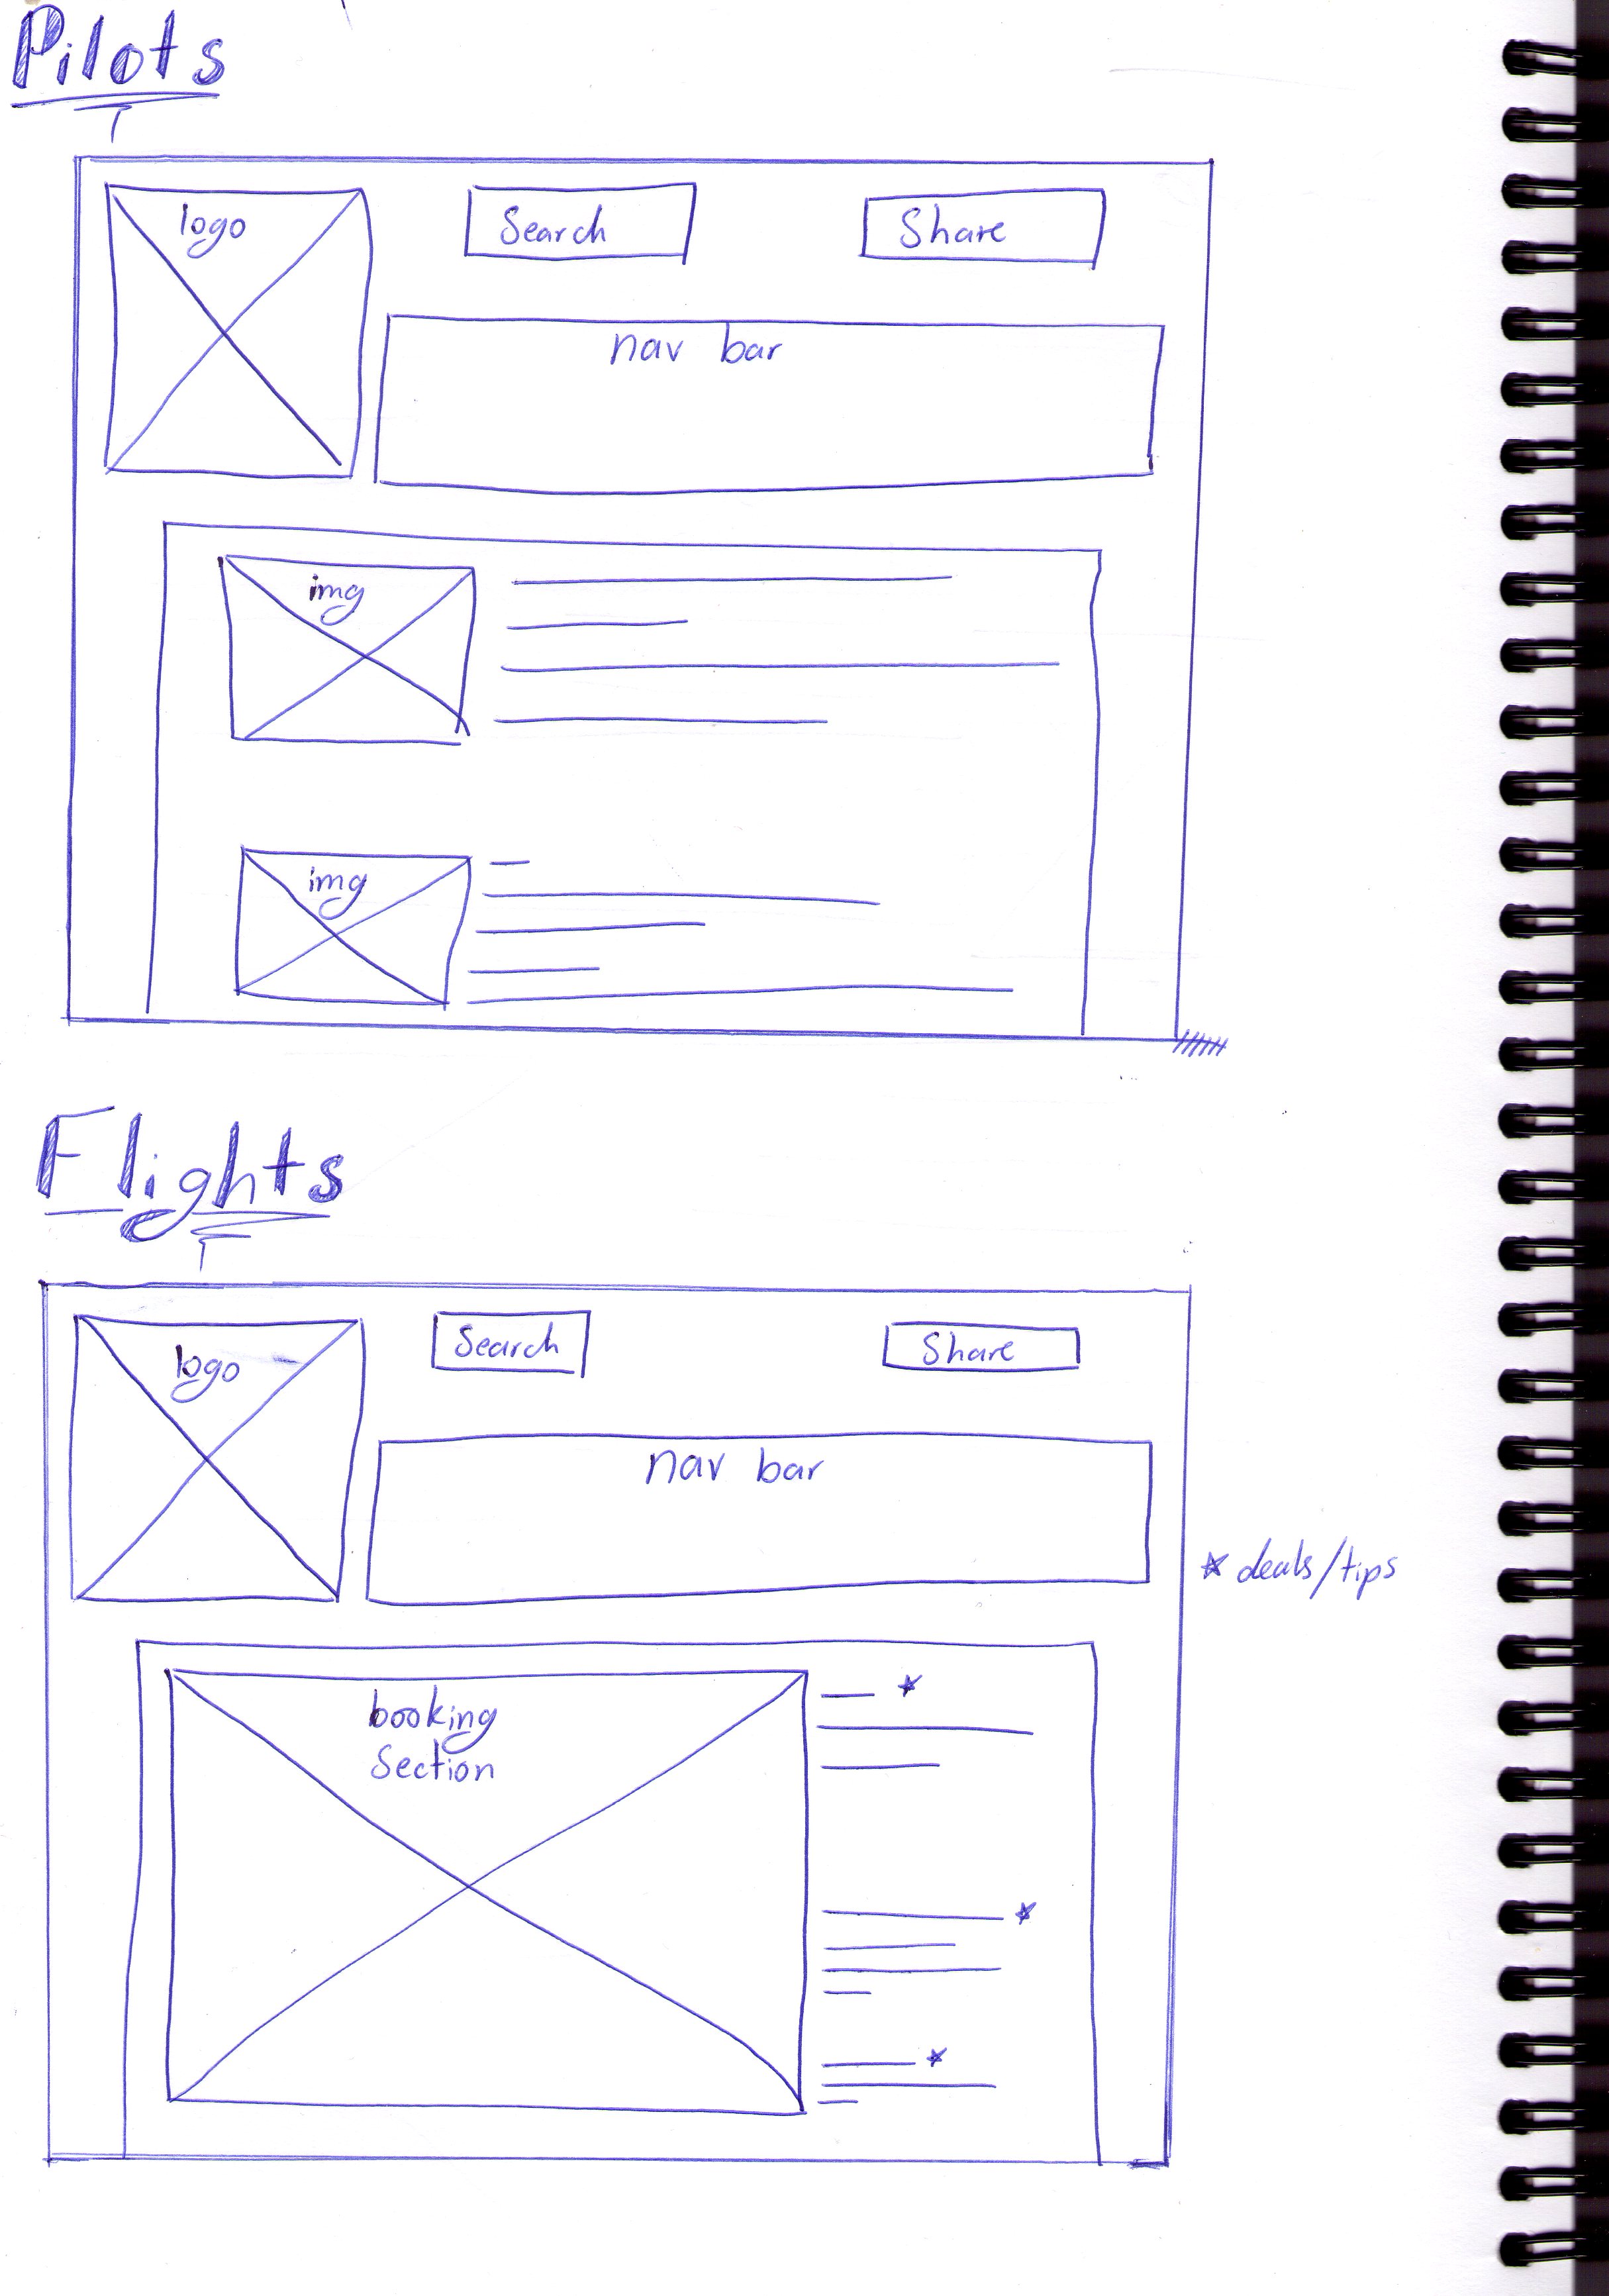 Pilots
logo
Search
Share
nav bar
img
img
Flights
logo
Search
Share
nav bar
* deals/tips
booking
Section
*
*
*